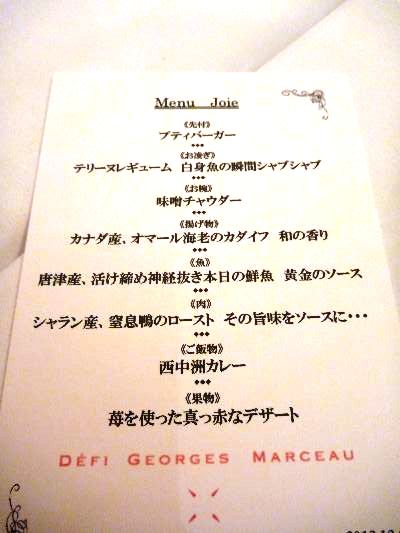 Menu Joie
《先付》
プティバーガー
◆◆◆
《お凌ぎ》
テリーヌレギューム 白身魚の瞬間シャブシャブ
◆◆◆
《お椀》
味噌チャウダー
◆◆◆
《揚げ物》
カナダ産、オマール海老のカダイフ 和の香り
◆◆◆
《魚》
唐津産、活け締め神経抜き本日の鮮魚 黄金のソース
◆◆◆
《肉》
シャラン産、窒息鴨のロースト その旨味をソースに・・・
◆◆◆
《ご飯物》
西中洲カレー
◆◆◆
《果物》
苺を使った真っ赤なデザート
DÉFI GEORGES MARCEAU